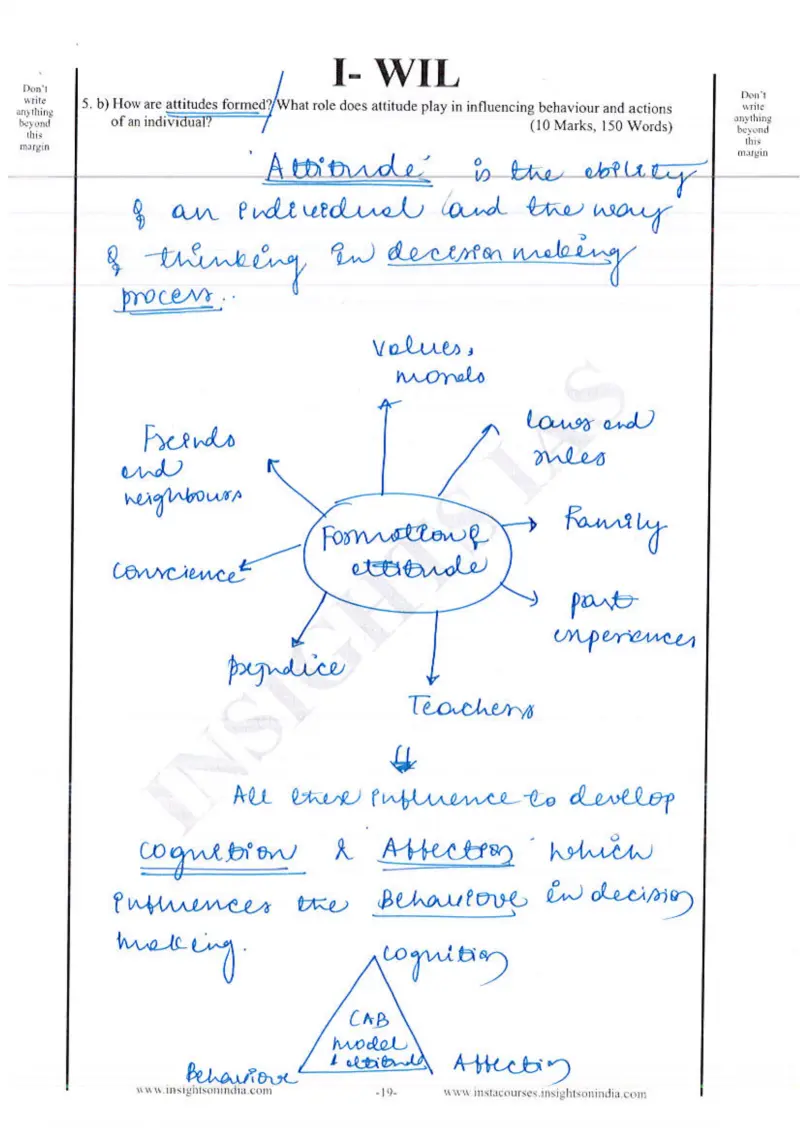 I- WIL
Don't
write
anything
beyond
this
margin
5. b) How are attitudes formed? What role does attitude play in influencing behaviour and actions
of an individual?
(10 Marks, 150 Words)
Don't
write
anything
beyond
this
margin
'Attitude' is the ability
of an individual (and the way
of thinking in decision making
process..
values,
morals
Laws and
rules
Friends
and
neighbours
Formation of
attitude
Family
conscience
past
experiences
prejudice
Teachers
All these influence to develop
cognition & Affection which
influences the Behaviour in decision
making.
cognition
CAB
model
of attitude
Behaviour
Affection
www.insightsonindia.com
-19-
www.instacourses.insightsonindia.com
INSIGHTS IAS